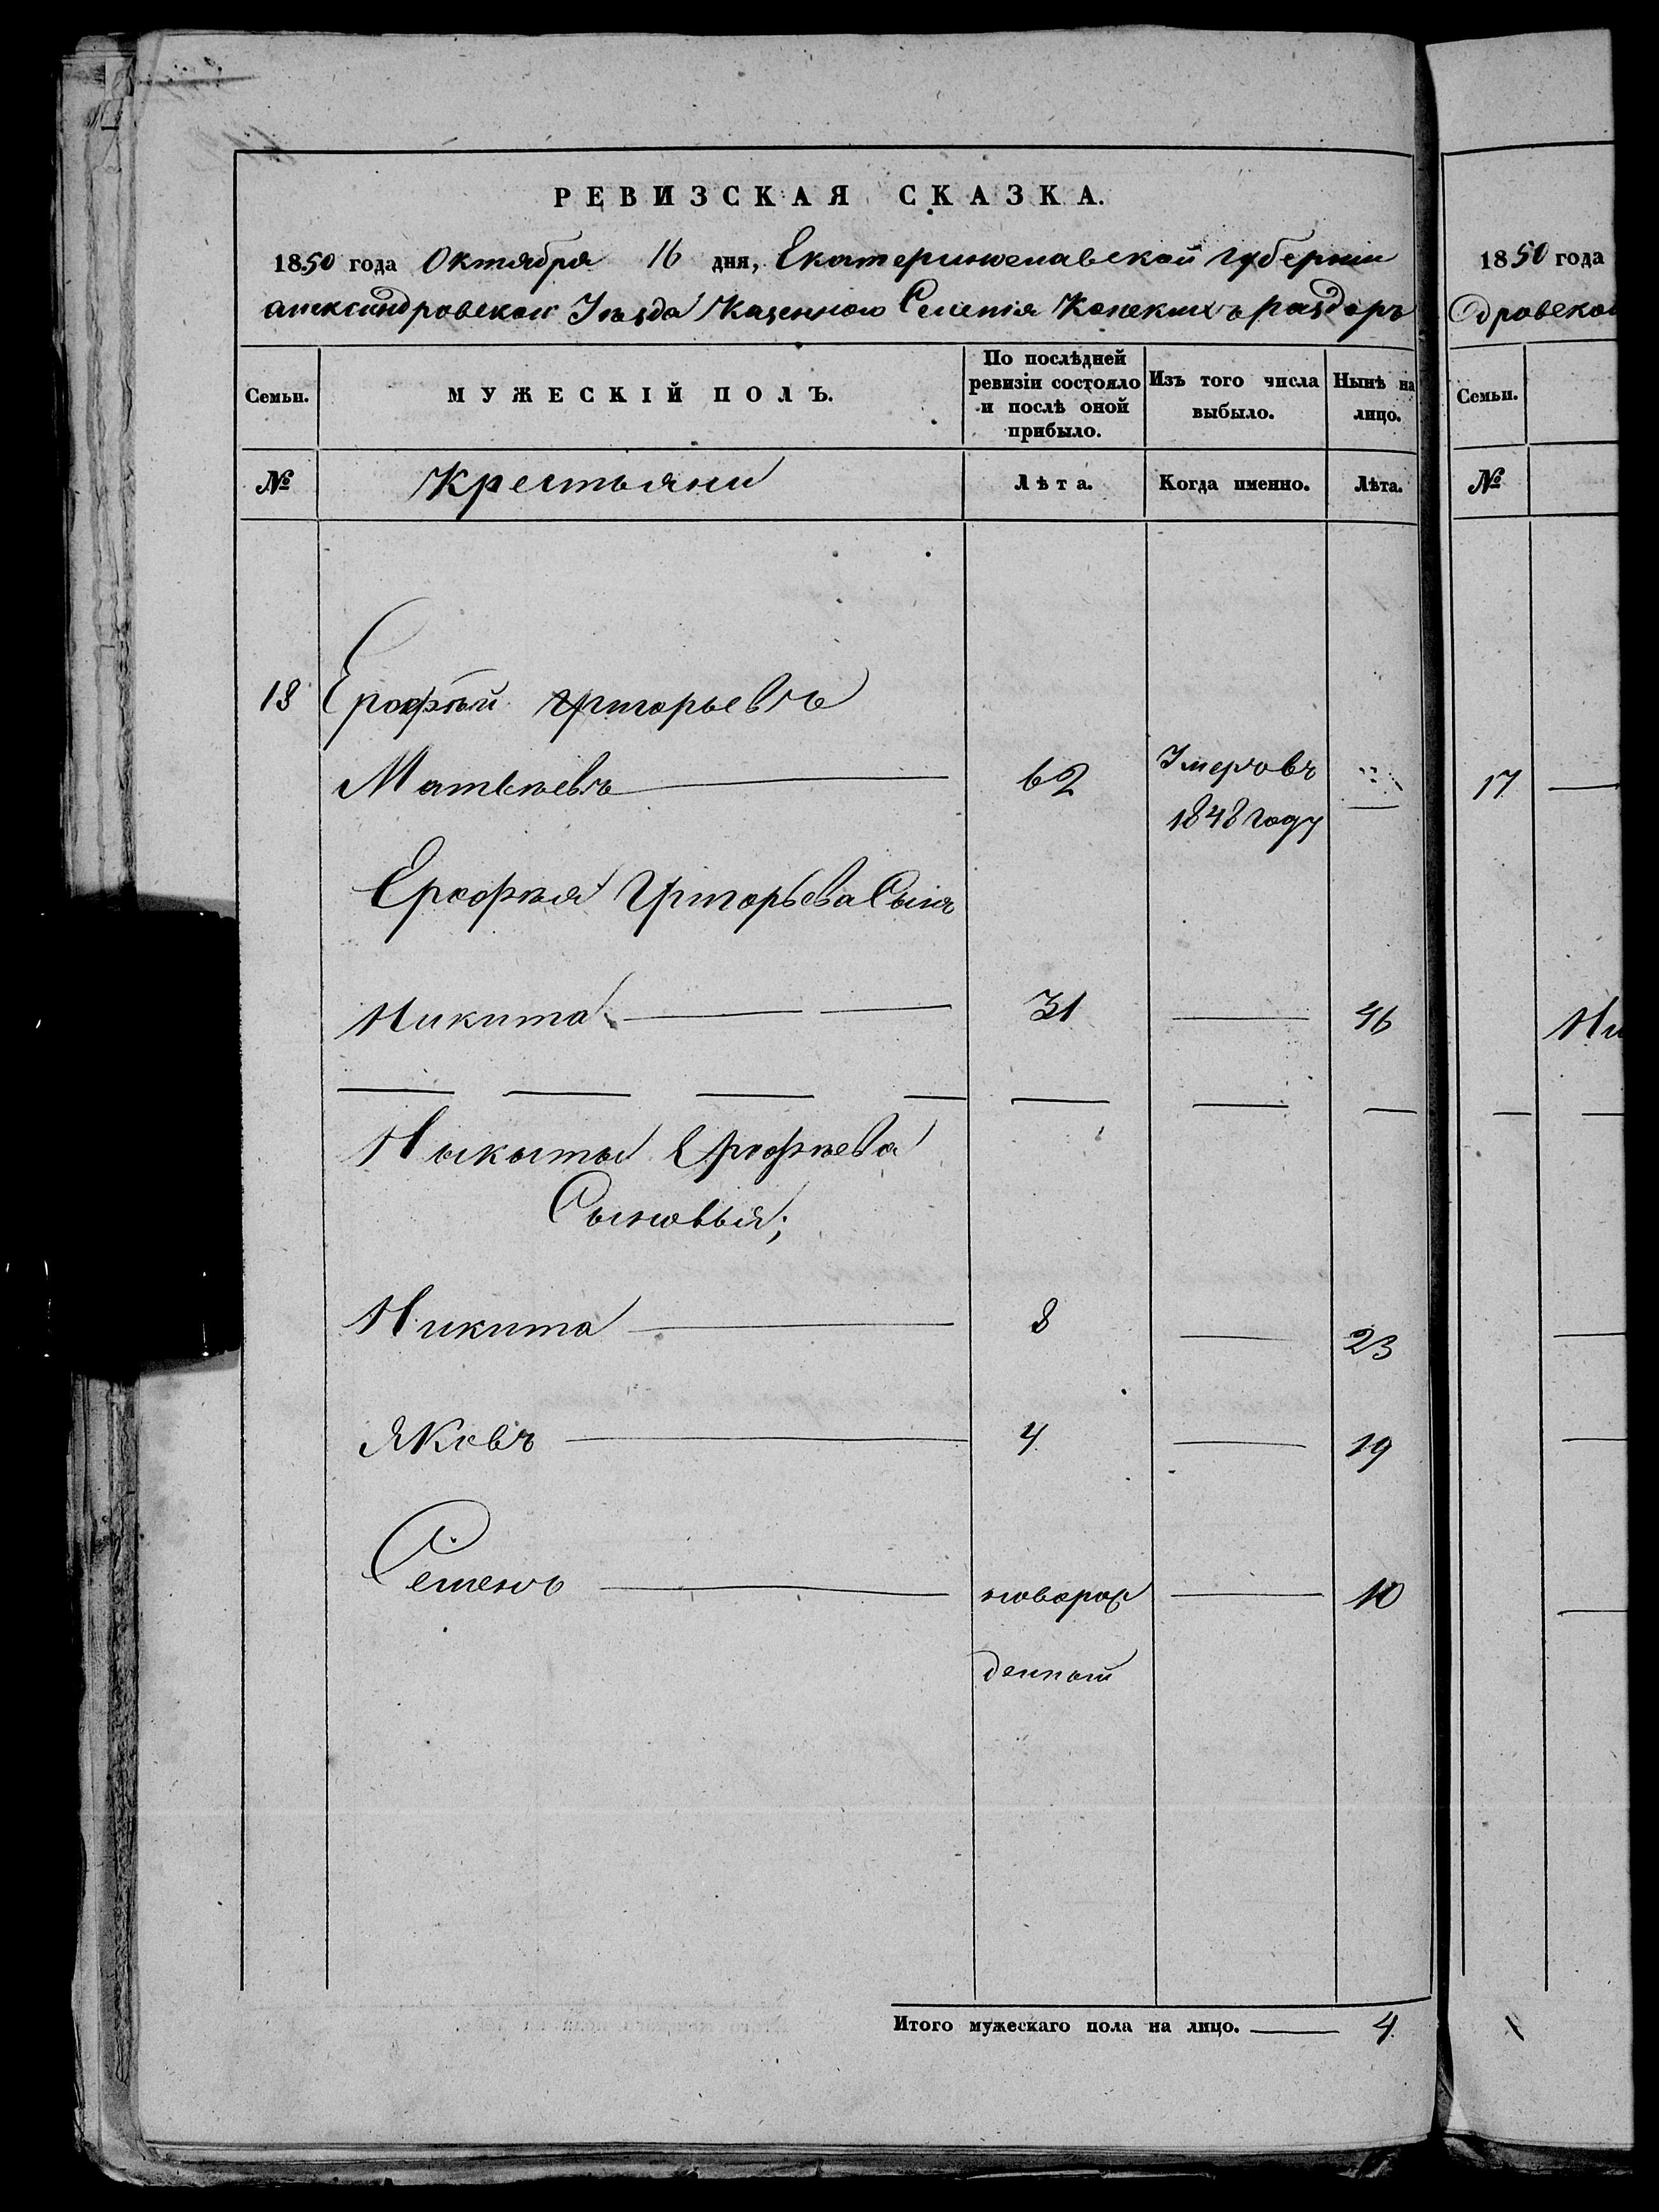 РЕВИЗСКАЯ СКАЗКА.
1850 года Октября 16 дня, Екатеринославской губернии
александровского Уезда Казенного Селенія Конскихъ раздоръ
Семьи.
МУЖЕСКІЙ ПОЛЪ.
По послѣдней ревизіи состояло и послѣ оной прибыло.
Изъ того числа выбыло.
Нынѣ на лицо.
№ Крестьяни Лѣта. Когда именно. Лѣта.
18 Ерофѣй Григорьевъ
Матвѣевъ 62 Умеръ въ
1848 году
Ерофѣя Григорьева Сынъ
Никита 31 46
Никиты Ерофѣева
Сыновья;
Никита 8 23
Яковъ 4 19
Семенъ новорож 10
денный
Итого мужескаго пола на лицо. 4
1850 года
дровеко
Семьи.
№
17
Ни